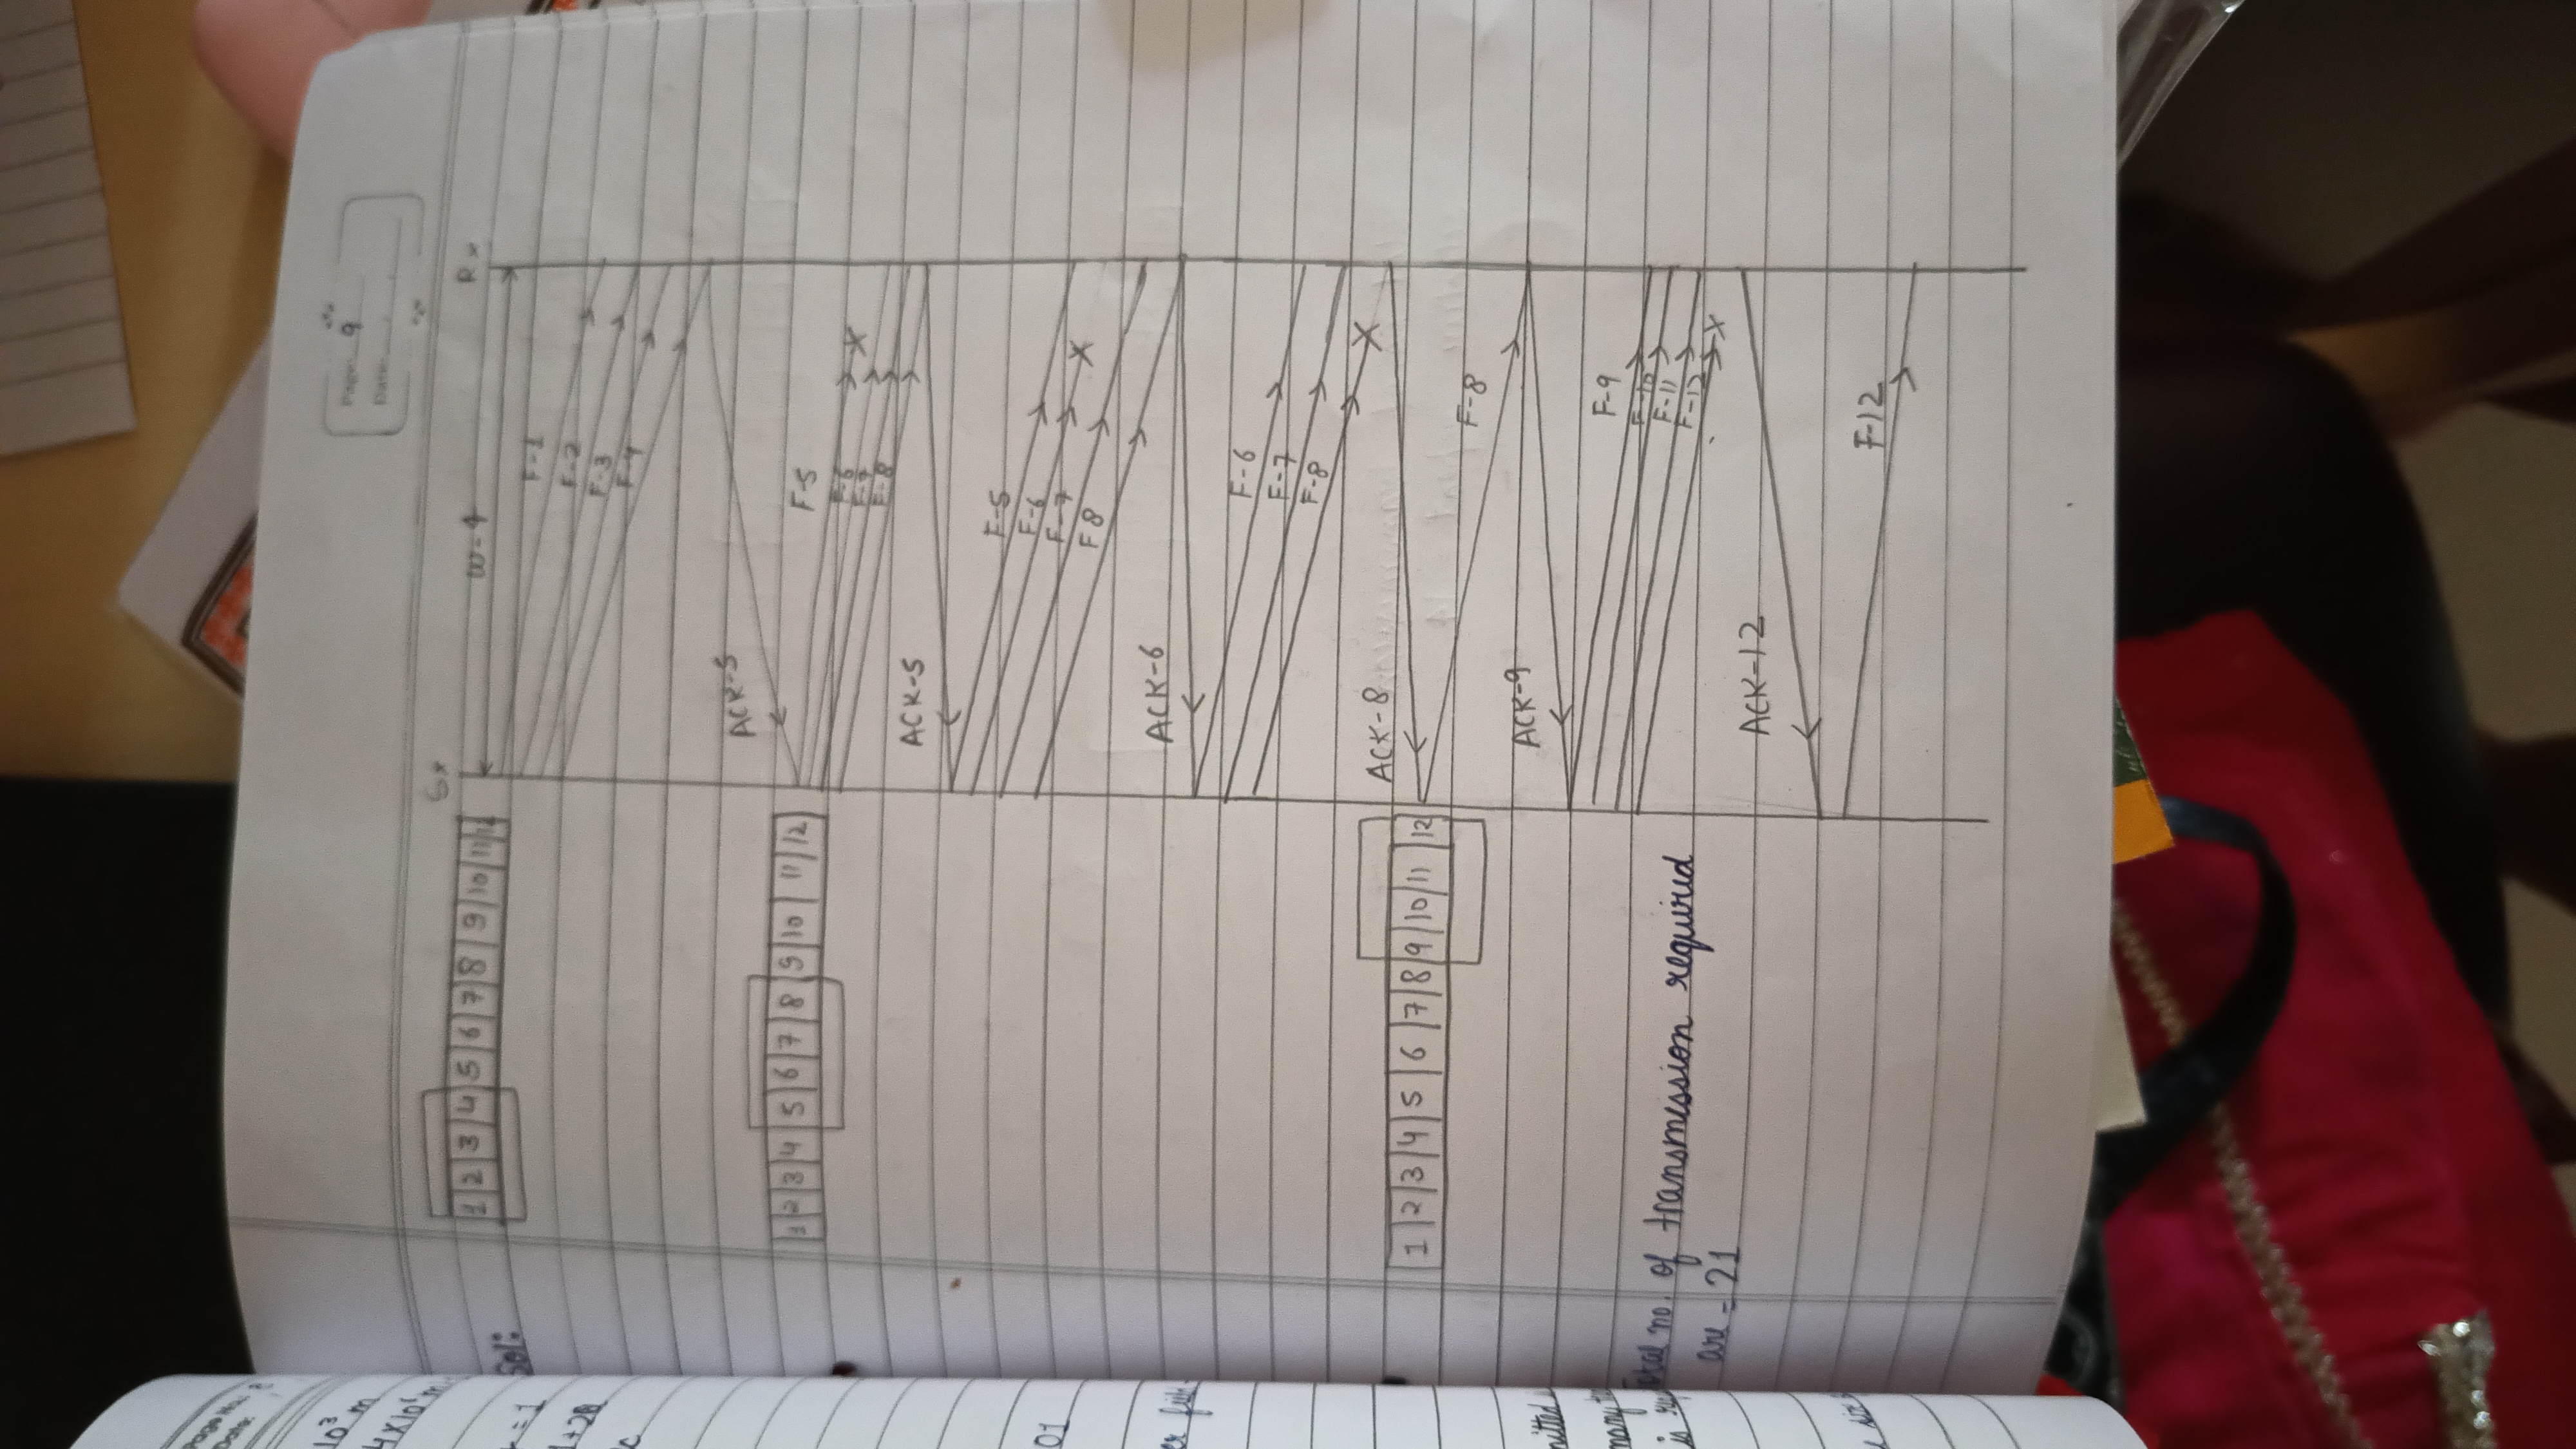 Page: 9
Date:
10³ m
4×10⁶m
= 1
1+2
c
01
er
mitted
many
is
Sol:
Sx
Rx
w=4
1 2 3 4 5 6 7 8 9 10 11
F-1
F-2
F-3
F-4
ACK-5
1 2 3 4 5 6 7 8 9 10 11 12
F-5
F-6
F-7
F-8
ACK-5
F-5
F-6
F-7
F 8
ACK-6
F-6
F-7
F-8
ACK-8
1 2 3 4 5 6 7 8 9 10 11 12
F-8
ACK-9
F-9
F-10
F-11
F-12
Total no. of transmission required
are = 21
ACK-12
F-12